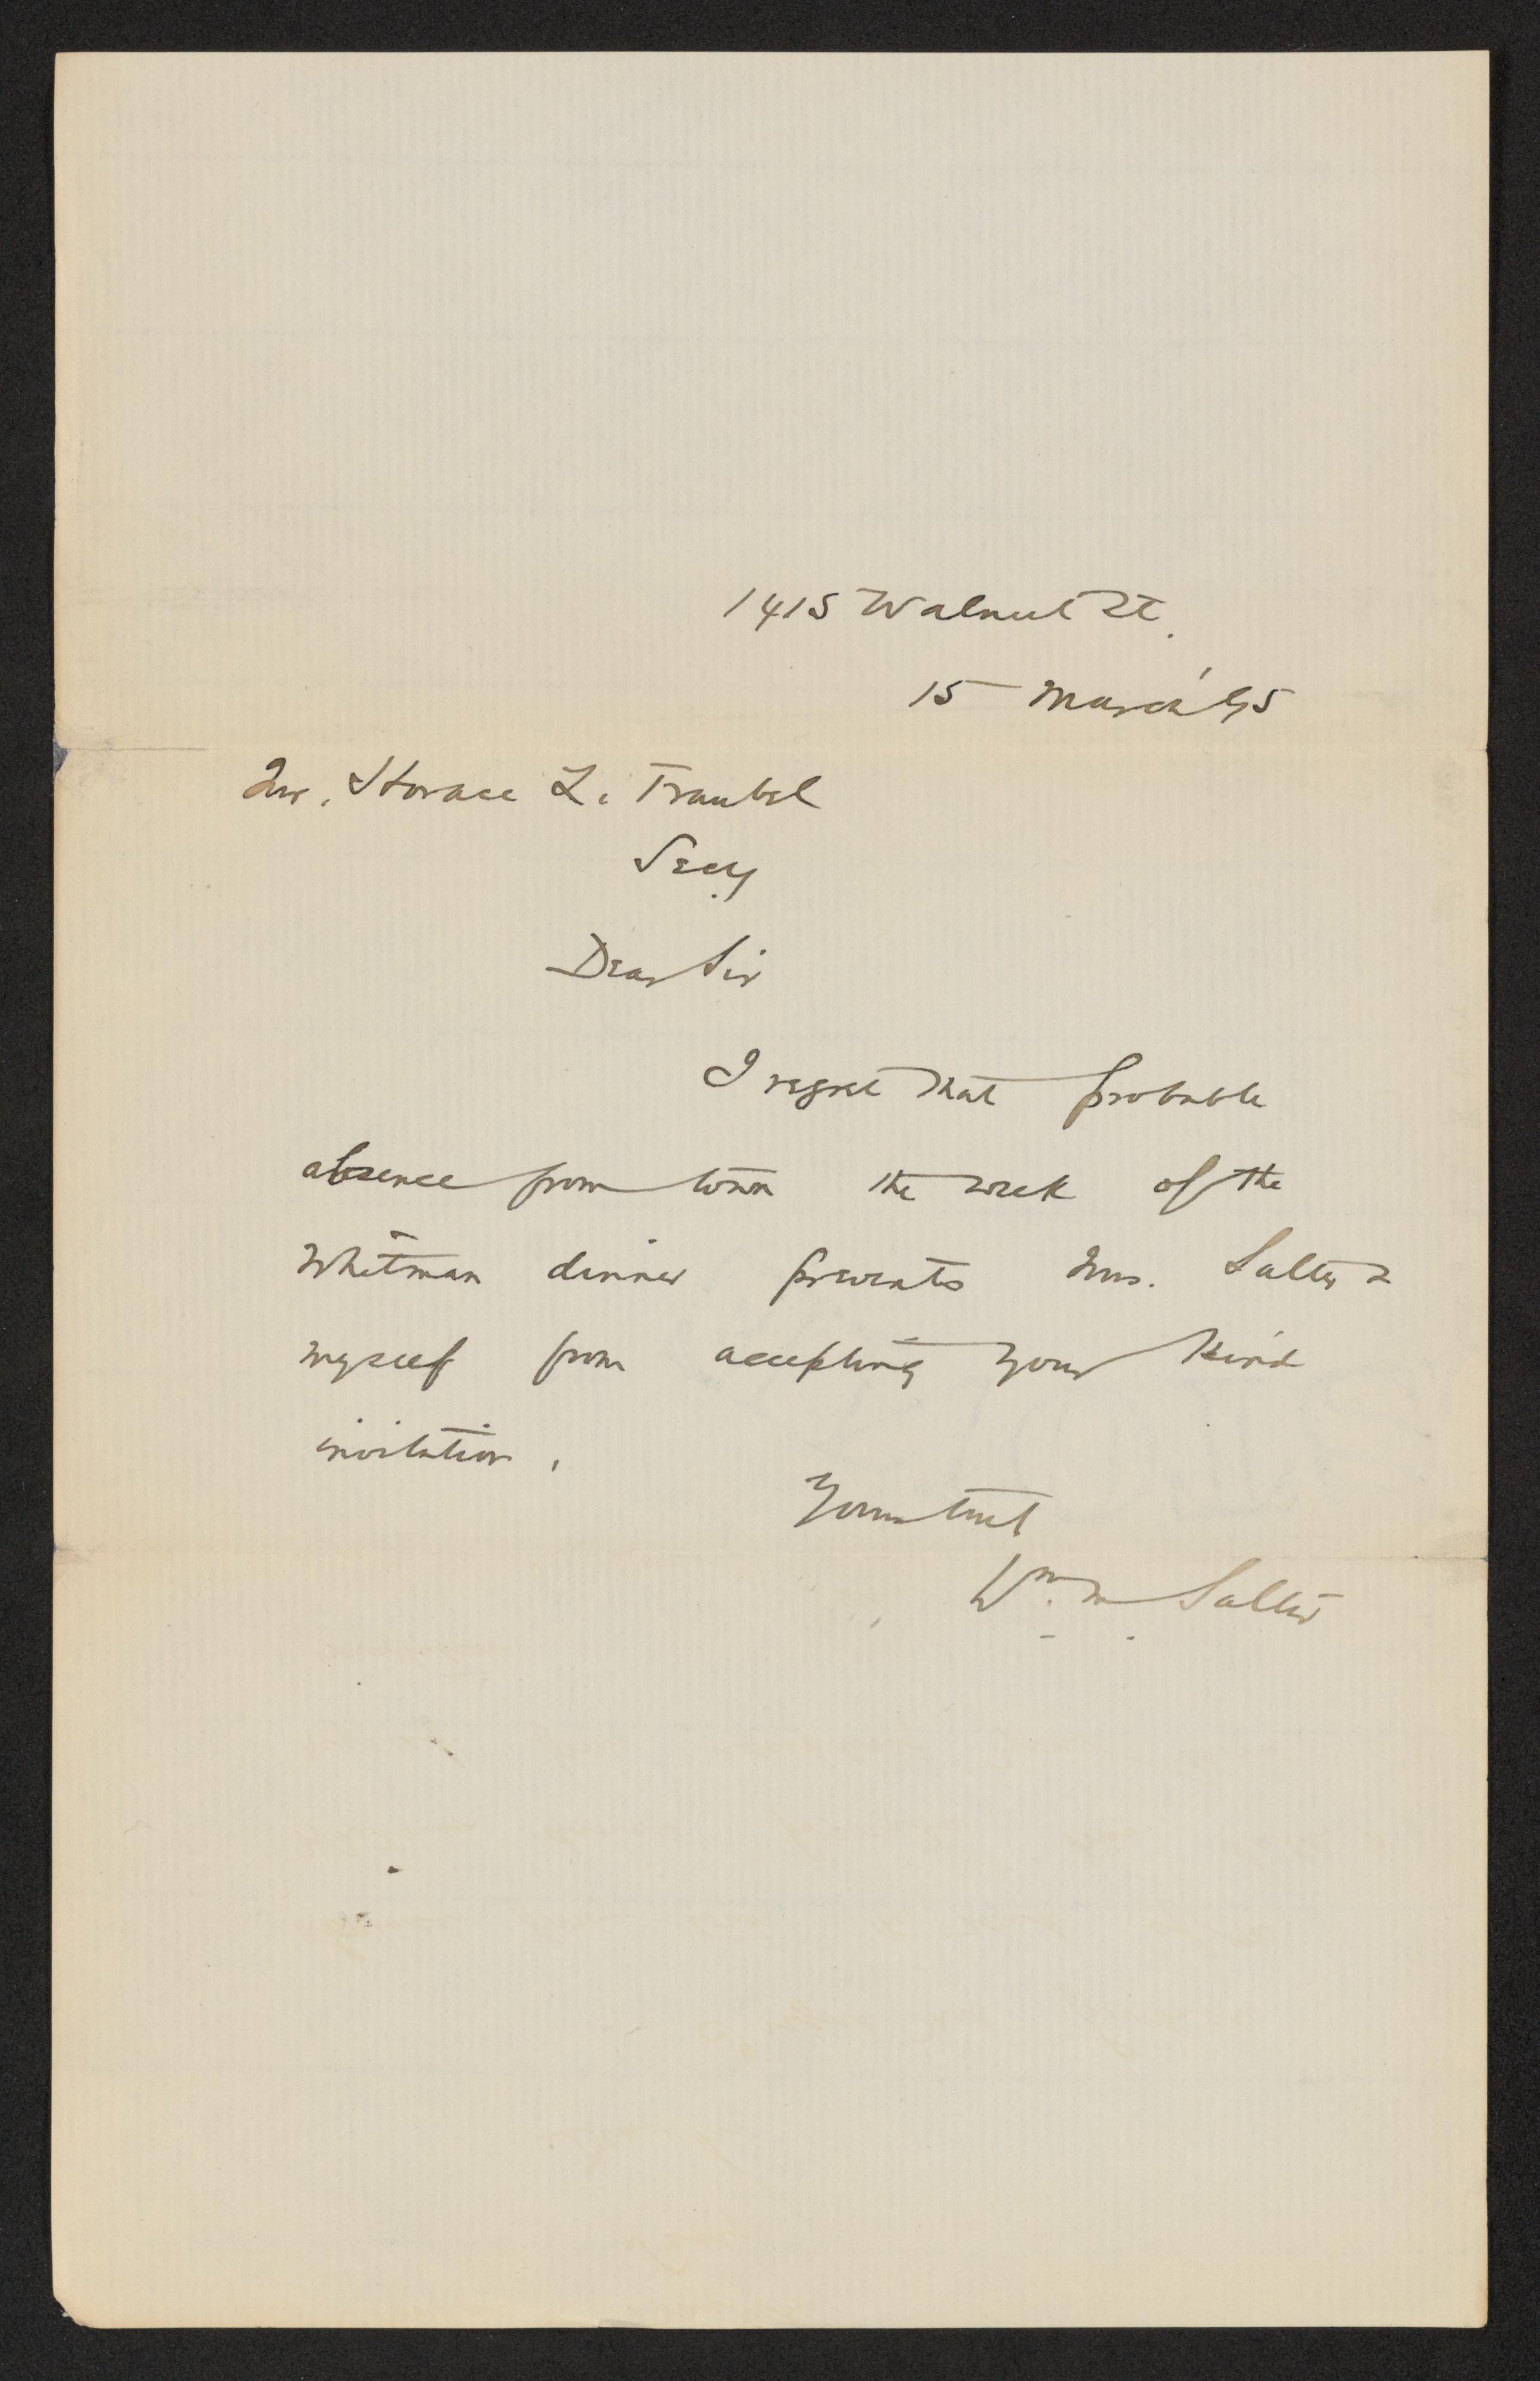 1415 Walnut St.
15 March '95
Mr. Horace L. Traubel
Secy
Dear Sir
I regret that probable
absence from town the week of the
Whitman dinner prevents Mrs. Salter &
myself from accepting your kind
invitation.
Yours truly
Wm. M Salter